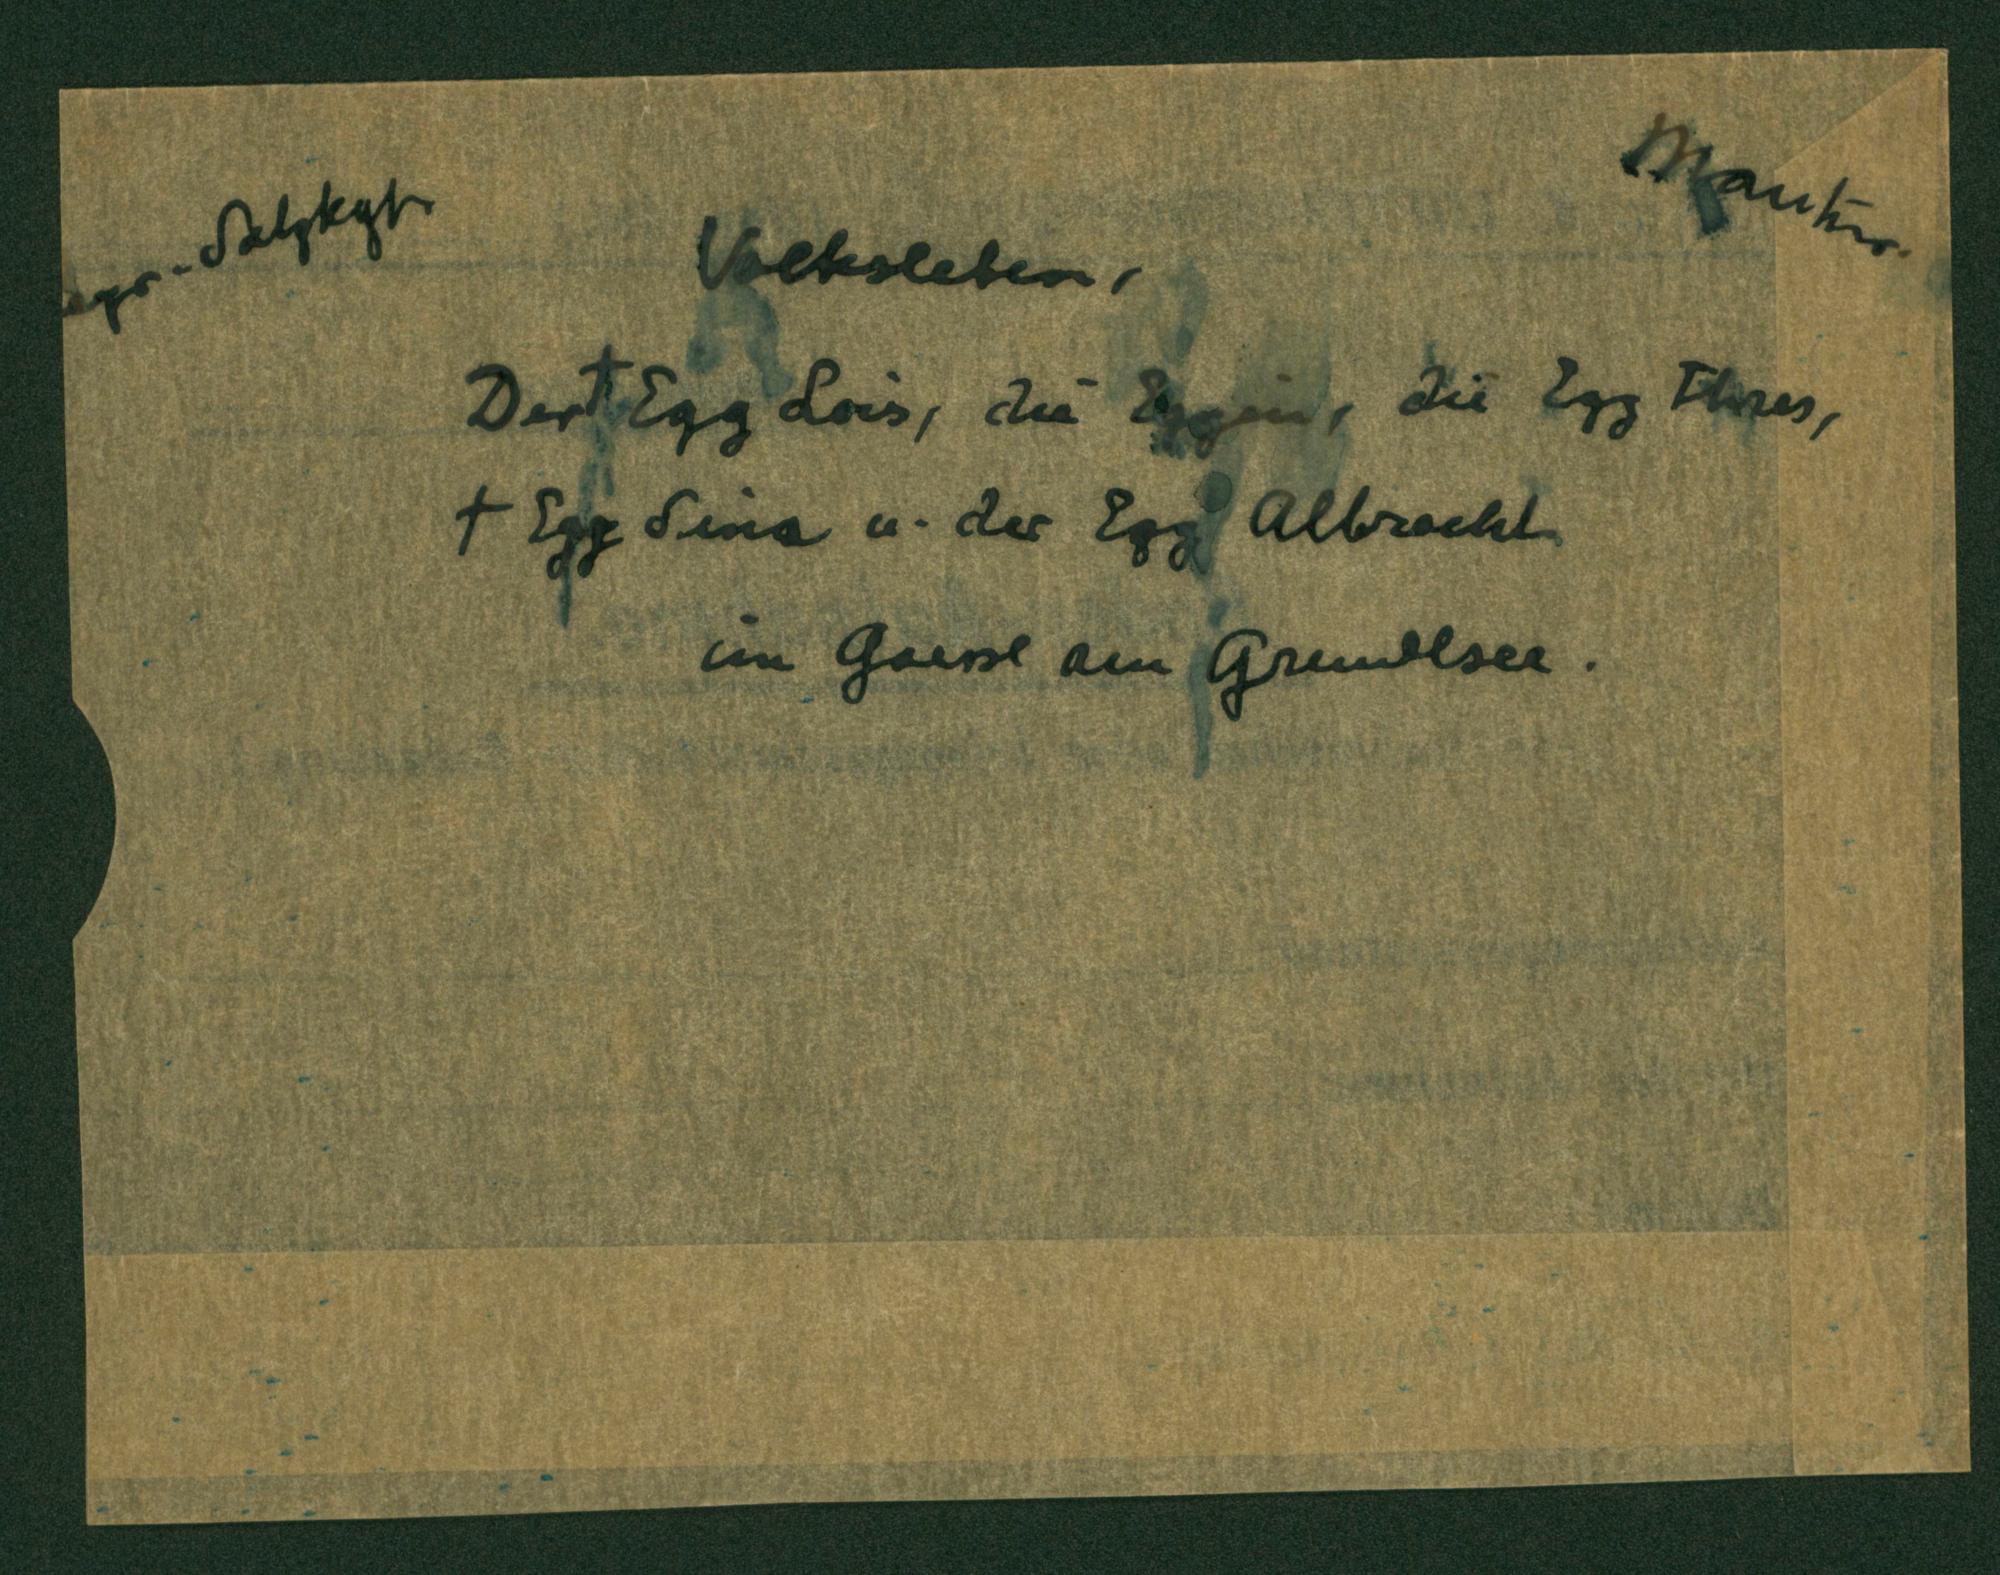 Salzkgt.
Volksleben,
Der † Egg Lois, die Eggin, die Egg Thres,
† Egg Sina u. der Egg Albrecht
im Goessl am Grundlsee.